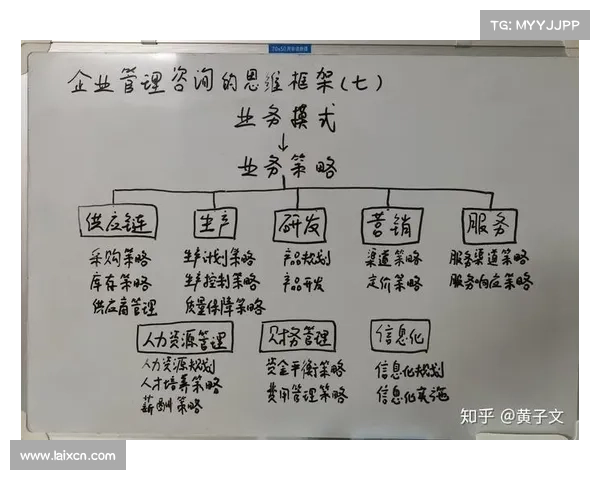 TG: MYYJJPP
企业管理咨询的思维框架(七)
业务模式
↓
业务策略
供应链 生产 研发 营销 服务
采购策略 生产计划策略 产品规划 渠道策略 服务渠道策略
库存策略 生产控制策略 产品开发 定价策略 服务响应策略
供应商管理 质量保障策略
人力资源管理 财务管理 信息化
人力资源规划 资金平衡策略 信息化规划
人才培养策略 费用管理策略 信息化实施
薪酬策略
知乎 @黄子文
www.laixcn.com